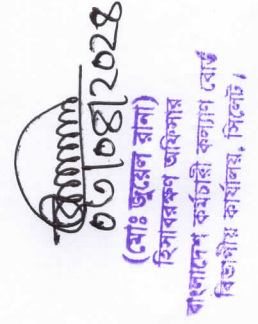 ০৩/০৪/২০২৪
(মোঃ জুয়েল রানা)
হিসাবরক্ষণ অফিসার
বাংলাদেশ কর্মচারী কল্যাণ বোর্ড
বিভাগীয় কার্যালয়, সিলেট।